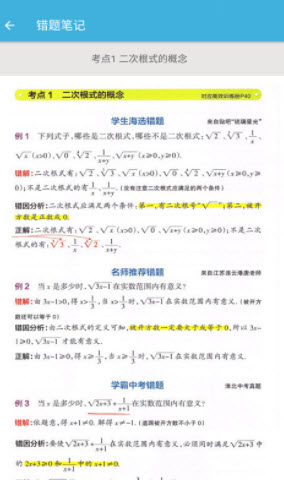 错题笔记
考点1 二次根式的概念
考点 1 二次根式的概念 对应高效训练册P40
学生海选错题 来自贴吧“琉璃星光”
例1 下列式子,哪些是二次根式,哪些不是二次根式: √2, ∛3, 1/x,
√x (x>0), √0, ∜2, 1/(x+y), √(x+y) (x≥0,y≥0).
错解:二次根式有:√2, ∛3, √x (x>0), √0, ∜2, √(x+y) (x≥0,y≥
0);不是二次根式的有 1/x, 1/(x+y). (没有注意二次根式应满足的两个条件)
错因分析:二次根式应满足两个条件:第一,有二次根号“√ ”;第二,被开
方数是正数或 0.
正解:二次根式有:√2, √x (x>0), √0, √(x+y) (x≥0,y≥0);不是二次
根式的有:∛3, 1/x, ∜2, 1/(x+y).
名师推荐错题 来自江苏连云港唐老师
例2 当 x 是多少时, √(3x-1) 在实数范围内有意义?
错解:由 3x-1>0,得 x>1/3, 当 x>1/3 时, √(3x-1) 在实数范围内有意义. (被开方
数还可以等于 0)
错因分析:由二次根式的定义可知,被开方数一定要大于或等于 0,所以 3x-
1≥0, √(3x-1) 才能有意义.
正解:由 3x-1≥0,得 x≥1/3, 当 x≥1/3 时, √(3x-1) 在实数范围内有意义.
学霸中考错题 淮北中考真题
例3 当 x 是多少时, √(2x+3) + 1/(x+1) 在实数范围内有意义?
错解:依题意,得 x+1≠0. 解得 x≠-1. (遗漏被开方数不小于 0)
错因分析:要使 √(2x+3) + 1/(x+1) 在实数范围内有意义,必须同时满足 √(2x+3) 中
的 2x+3≥0 和 1/(x+1) 中的 x+1≠0.